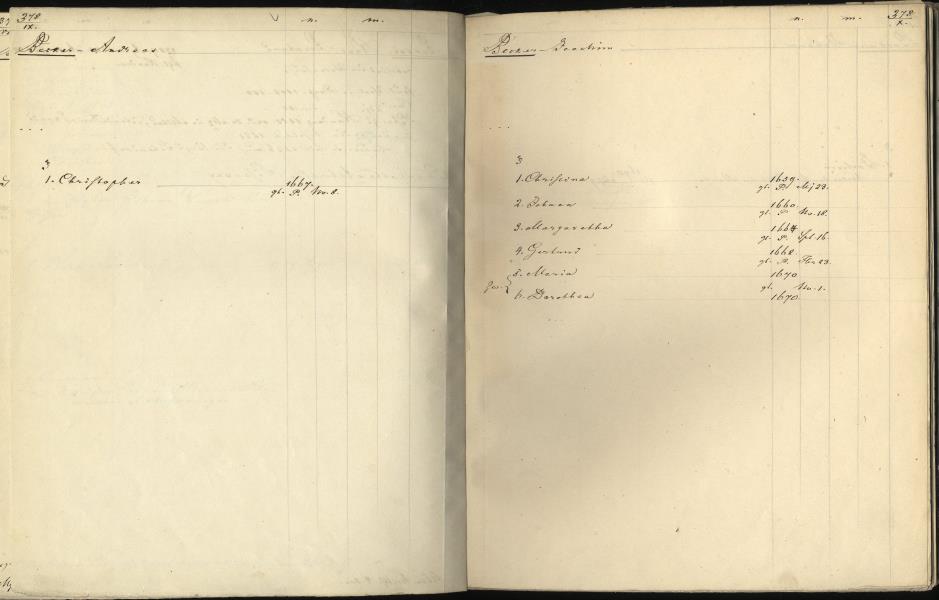 378
IX.
n.
m.
Becker - Andreas
. . .
3
1. Christopher
1667.
gt. P. Nov. 8.
n.
m.
378
X.
Becker - Joachim
. . .
3
1. Christina
1659.
gt. P. Mz 23.
2. Johann
1660.
gt. P. Nov. 18.
3. Margaretha
1664.
gt. P. Spt. 16.
4. Gertrud
1668.
gt. P. 23.
5. Maria
1670
gt. Nov. 1.
6. Dorothea
1670.
. . .